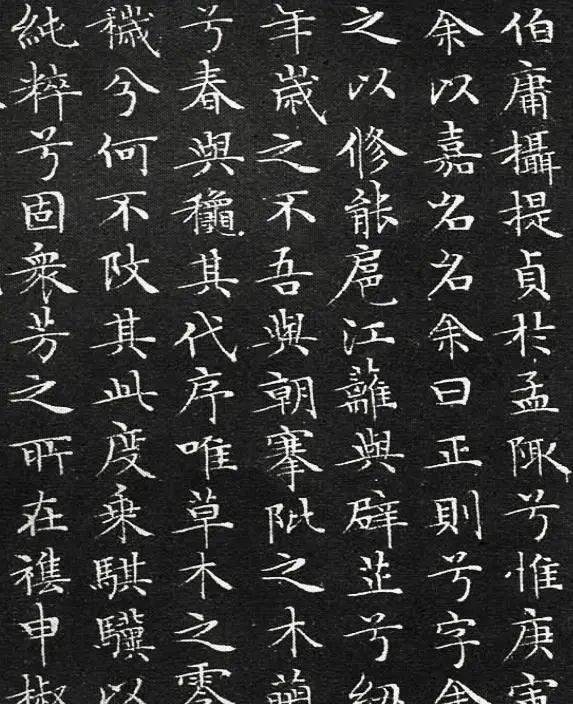 伯庸攝提貞於孟陬兮惟庚寅
余以嘉名名余曰正則兮字余
之以修能扈江蘺與辟芷兮紉
年歲之不吾與朝搴阰之木蘭
兮春與龝其代序唯草木之零
穢兮何不改其此度乘騏驥以
純粹兮固衆芳之所在襍申椒